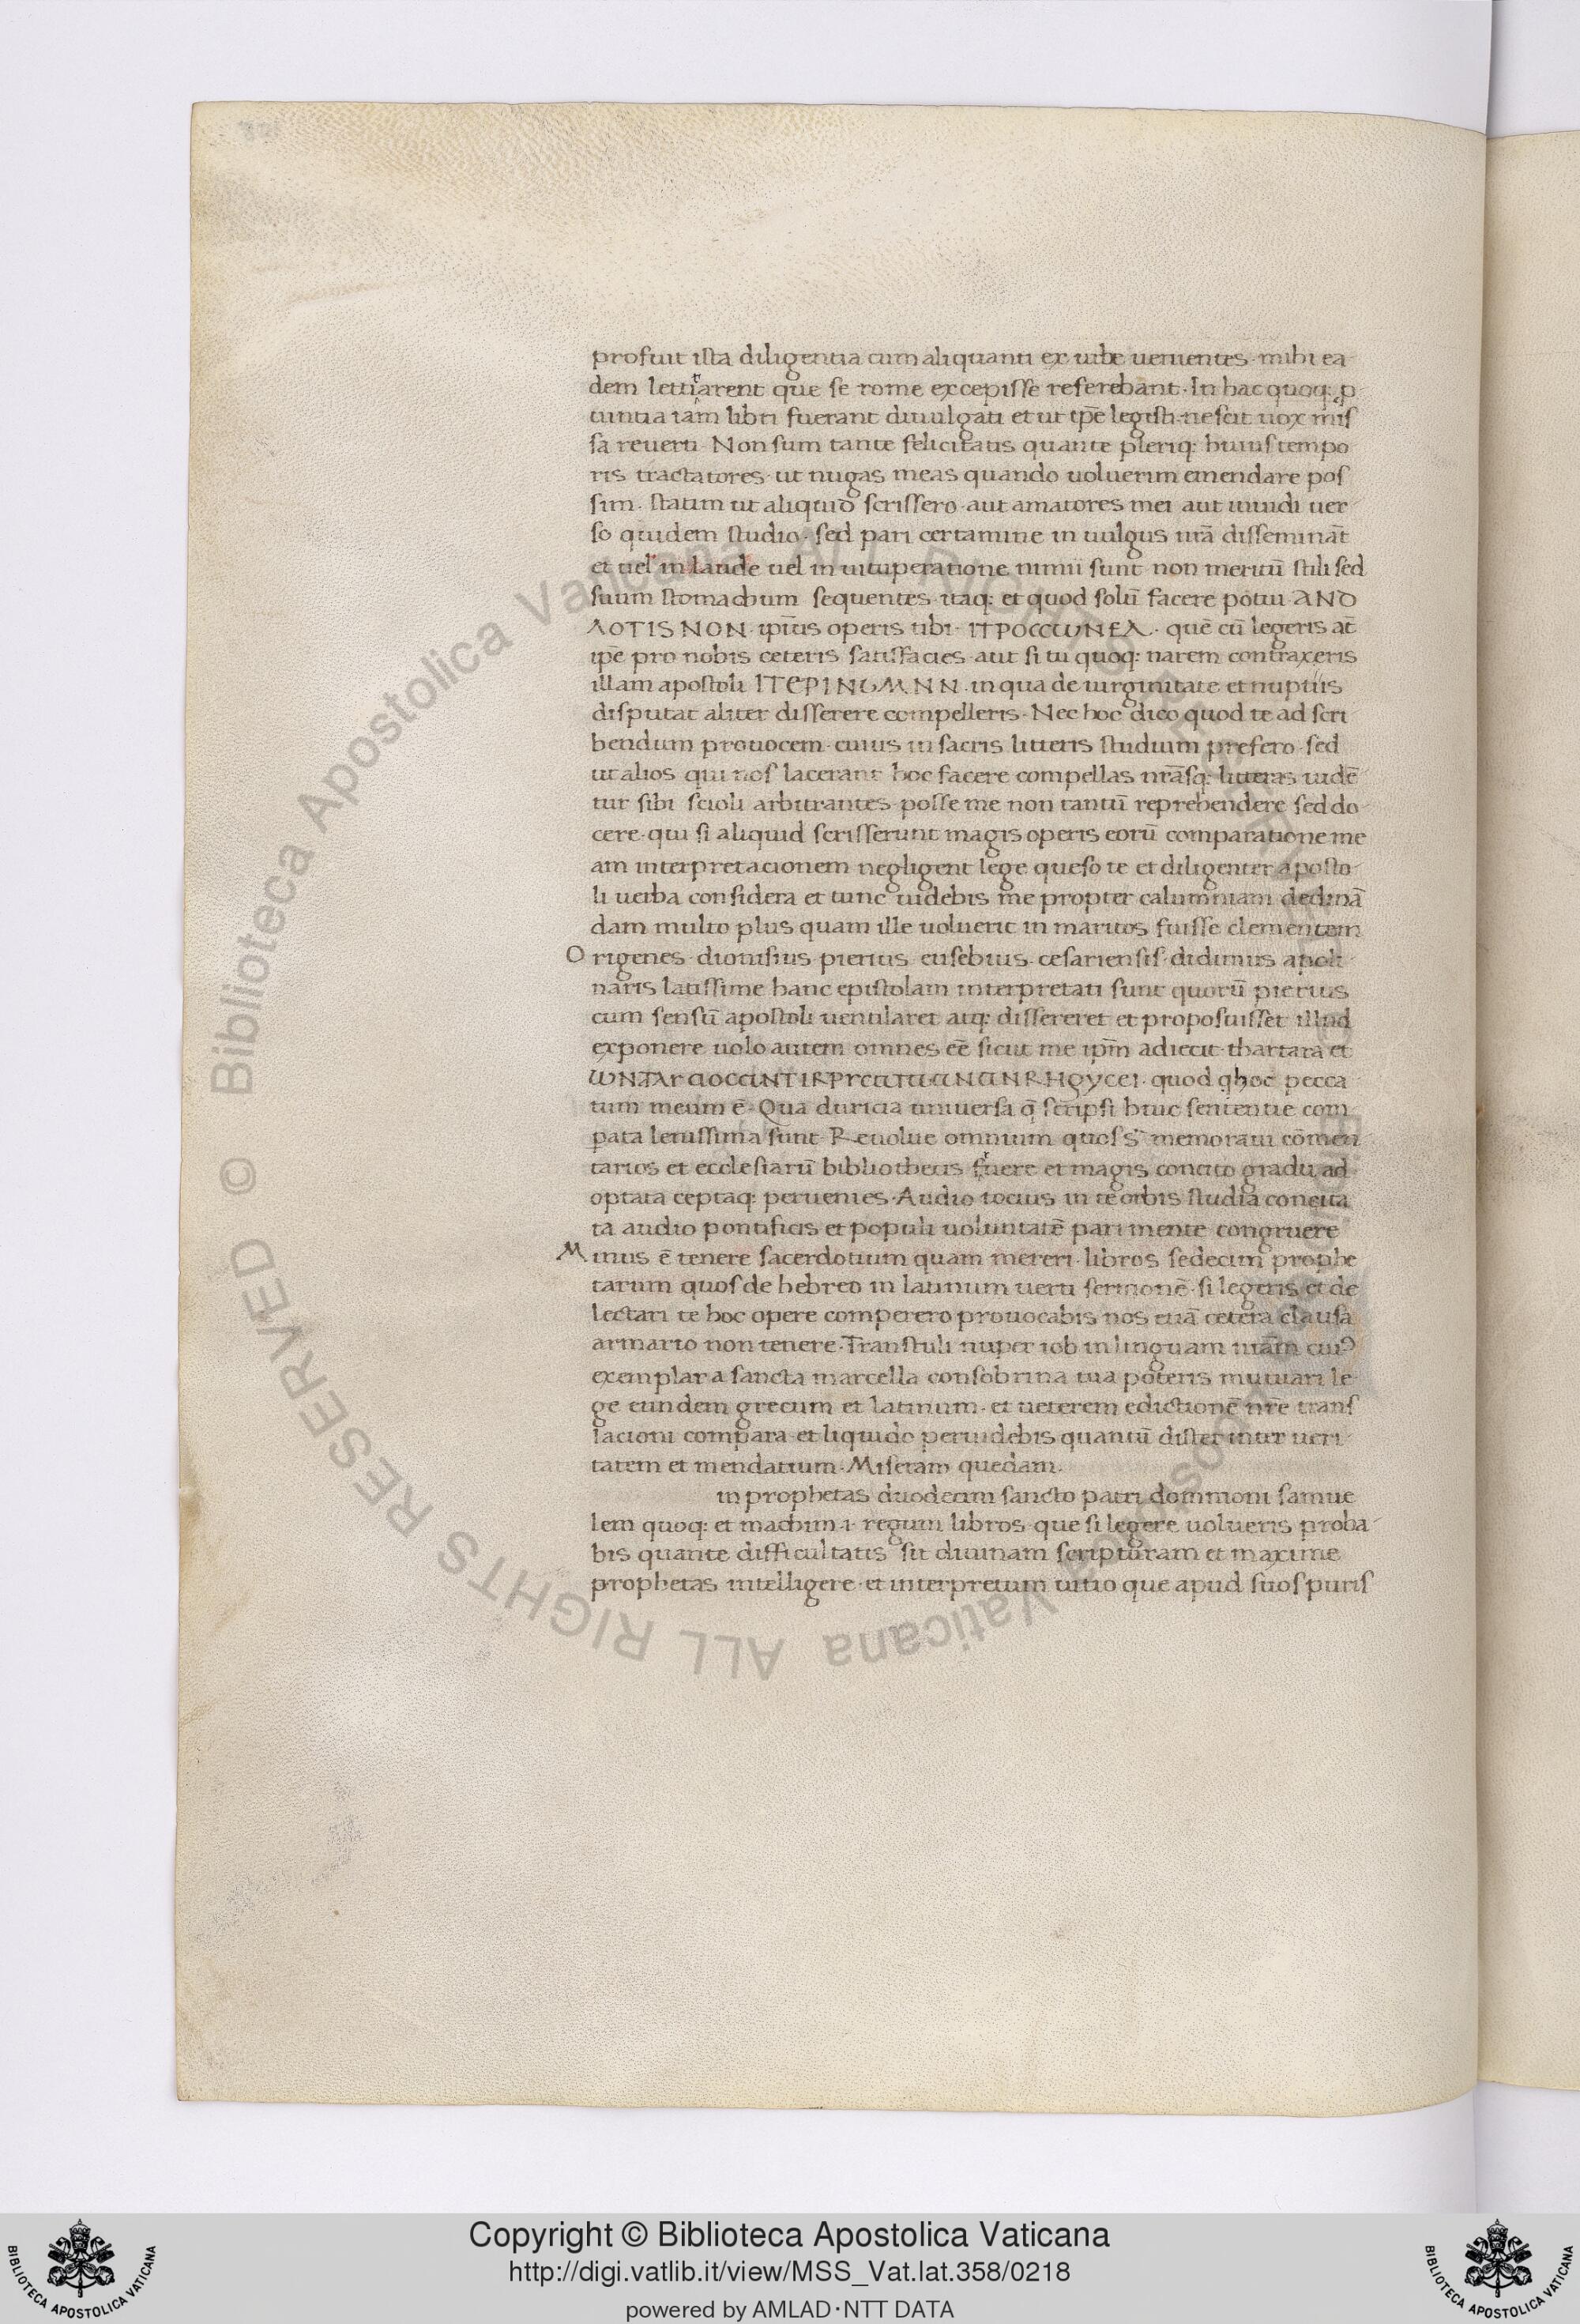 profuit ista diligentia cum aliquanti ex urbe uenientes· mihi ea
dem lettitarent que se rome excepisse referebant· In hac quoq: p
uintia iam libri fuerant diuulgati et ut ip̄e legisti· nescit uox mis
sa reuerti· Non sum tante felicitatis quante pleriq: huius tempo
ris tractatores· ut nugas meas quando uoluerim emendare pos
sim· statim ut aliquid scrissero· aut amatores mei aut inuidi uer
so quidem studio· sed pari certamine in uulgus nr̄a dissemināt
et uel in laude uel in uituperatione nimii sunt non meritū stili sed
suum stomachum sequentes· itaq: et quod solū facere potui· ANO
ΛOTIS NON· ip̄ius operis tibi· ITPOCCωNEΛ· quē cū legeris at̄
ip̄e pro nobis ceteris satisfacies· aut si tu quoq: narem contraxeris
illam apostoli ITEPINGMNN· in qua de uirginitate et nuptiis
disputat aliter disserere compelleris· Nec hoc dico quod te ad scri
bendum prouocem· cuius in sacris litteris studium prefero· sed
ut alios qui nos lacerant hoc facere compellas nr̄asq: litteras uidē
tur sibi scioli arbitrantes· posse me non tantū reprehendere sed do
cere· qui si aliquid scrisserunt magis operis eorū comparatione me
am interpretacionem negligent lege queso te et diligenter aposto
li uerba considera et tunc uidebis me propter calumniam declinā
dam multo plus quam ille uoluerit in maritos fuisse clementem
O rigenes· dionisius· pierius· eusebius· cesariensis· didimus apoli
naris latissime hanc epistolam interpretati sunt quorū pierius
cum sensū apostoli uentilaret atq: dissereret et proposuisset illud
exponere uolo autem omnes eē sicut me ip̄m adiecit· thartara et
quod qhoc pecca
tum meum ē· Qua duricia uniuersa q̄ scripsi huic sententie com
pata lenissima sunt· Reuolue omnium quos s̄ memoraui cōmen
tarios et ecclesiarū bibliothecis fruere et magis concito gradu ad
optata ceptaq: peruenies· Audio tocius in te orbis studia concita
ta audio pontificis et populi uoluntatē pari mente congruere
M inus ē tenere sacerdotium quam mereri· libros sedecim prophe
tarum quos de hebreo in latinum uerti sermonē· si legeris et de
lectari te hoc opere comperero prouocabis nos etiā cetera clausa
armario non tenere· Transtuli nuper iob in linguam nr̄am cui9
exemplar a sancta marcella consobrina tua poteris mutuari le
ge eundem grecum et latinum· et ueterem edictionē nr̄e trans
lacioni compara· et liquido peruidebis quantū distet inter ueri
tatem et mendatium· Miseram quedam·
in prophetas duodecim sancto patri dommoni samue
lem quoq: et machim· i· regum libros· que si legere uolueris proba
bis quante difficultatis sit diuinam scripturam et maxime
prophetas intelligere· et interpretum uitio que apud suos puris
Biblioteca Apostolica Vaticana ALL RIGHTS RESERVED ©
Copyright © Biblioteca Apostolica Vaticana
http://digi.vatlib.it/view/MSS_Vat.lat.358/0218
powered by AMLAD·NTT DATA
BIBLIOTECA APOSTOLICA VATICANA
BIBLIOTECA APOSTOLICA VATICANA